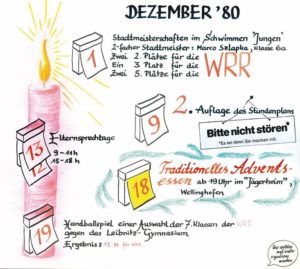 DEZEMBER '80
1
Stadtmeisterschaften im Schwimmen "Jungen"
2-facher Stadtmeister: Marco Szlapka, Klasse 6a
Zwei 2. Plätze für die
Ein 3. Platz für die
Zwei 5. Plätze für die
WRR
9
2. Auflage des Stundenplans
Bitte nicht stören*
*Es sei denn Sie machen mit.
13
12
Elternsprechtage
9-11h
15-18h
18
Traditionelles Advents-
essen ab 19 Uhr im "Jägerheim",
Wellinghofen
19
Handballspiel einer Auswahl der 7. Klassen der WRR
gegen das Leibnitz-Gymnasium
Ergebnis: 13:11 für uns